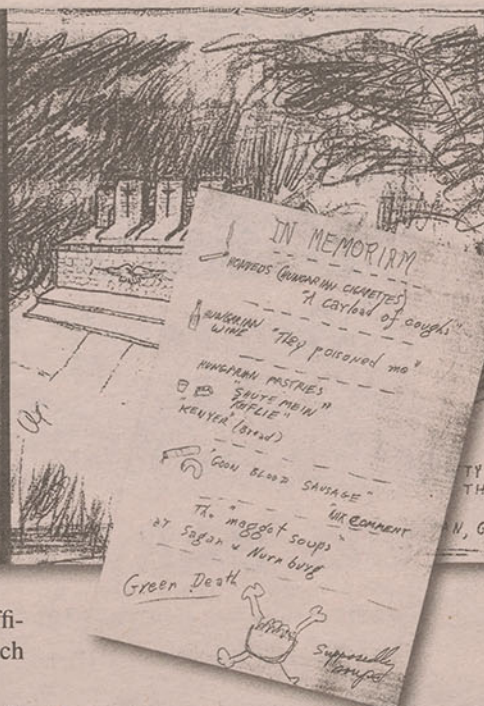 IN MEMORIAM
HONVEDS (HUNGARIAN CIGARETTES)
"A carload of coughs"
HUNGARIAN
WINE "They poisoned me"
HUNGARIAN PASTRIES
"SAUTE MEIN"
"KEFLIE"
"KENYER" (Bread)
"GOON BLOOD SAUSAGE"
"NIX COMMENT"
The "maggot soups"
AT Sagan & Nurnburg
Green Death
Supposedly
TY
TH
N, G
ffi-
ch